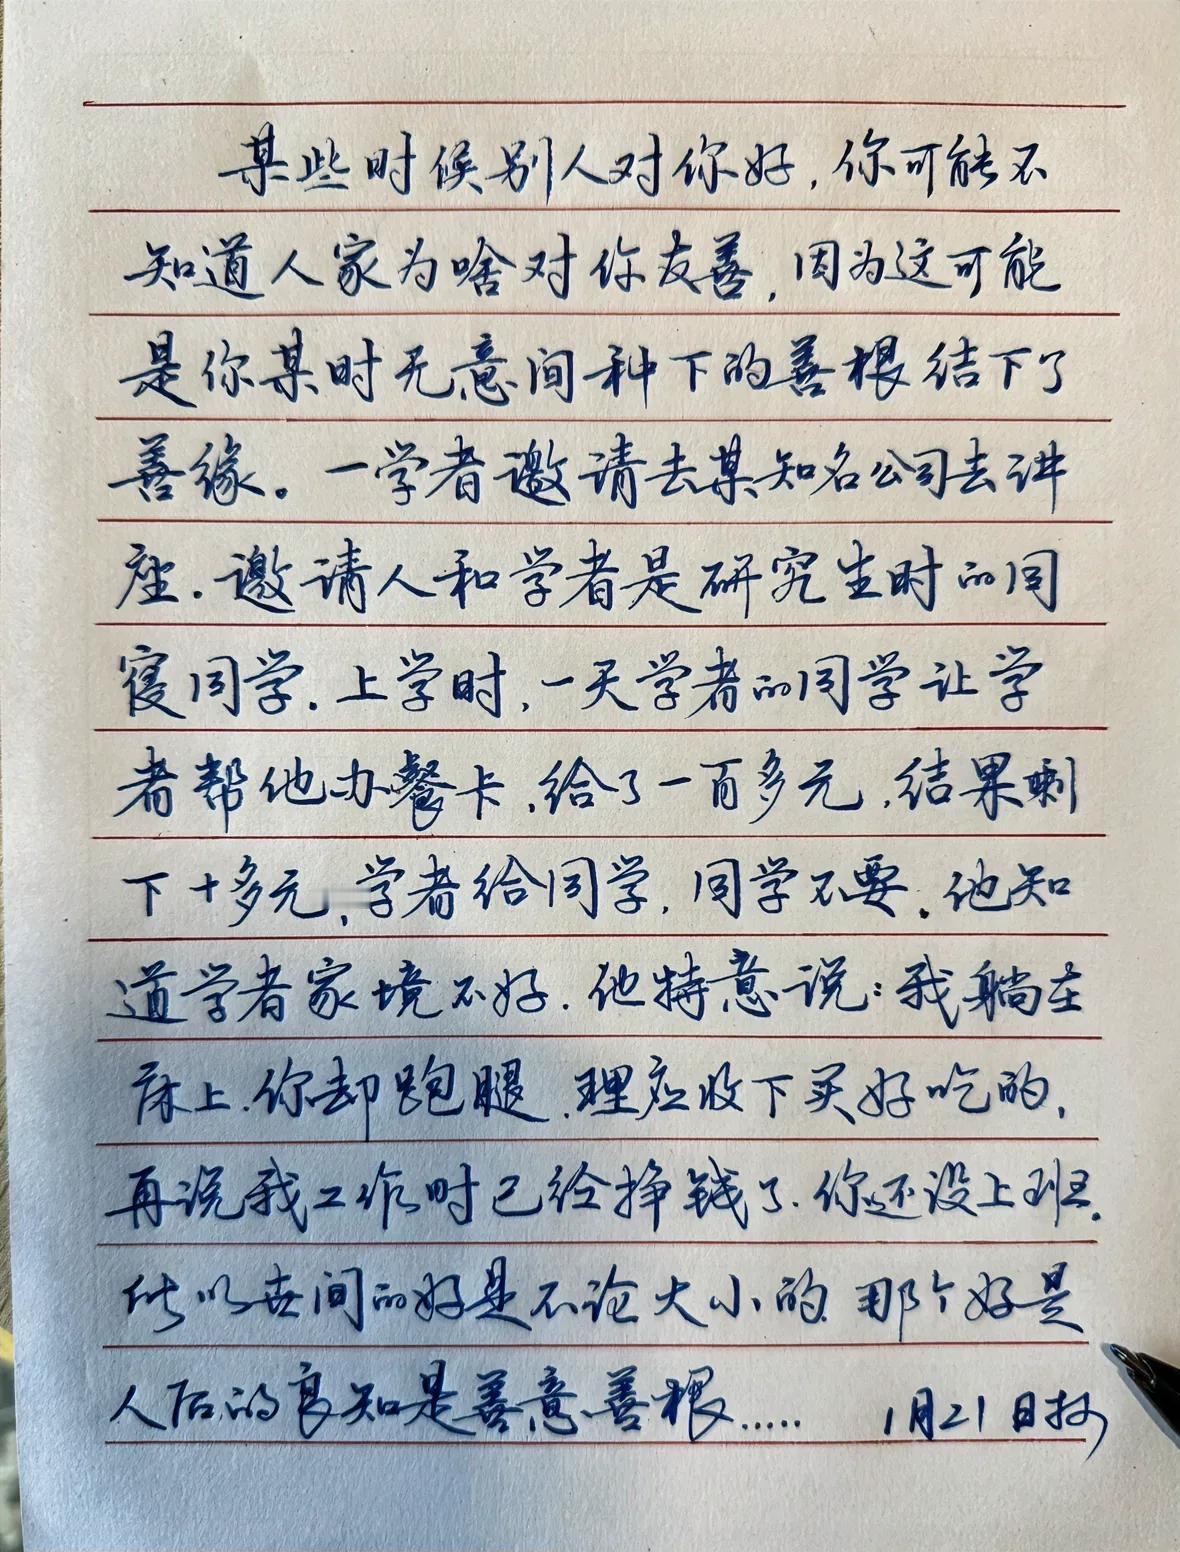 某些时候别人对你好，你可能不
知道人家为啥对你友善，因为这可能
是你某时无意间种下的善根结下了
善缘。一学者邀请去某知名公司去讲
座．邀请人和学者是研究生时的同
寝同学．上学时，一天学者的同学让学
者帮他办餐卡，给了一百多元，结果剩
下十多元，学者给同学，同学不要．他知
道学者家境不好．他特意说：我躺在
床上．你却跑腿．理应收下买好吃的，
再说我工作时已给挣钱了．你还没上班．
所以世间的好是不论大小的．那个好是
人后的良知是善意善根.....　1月21日抄